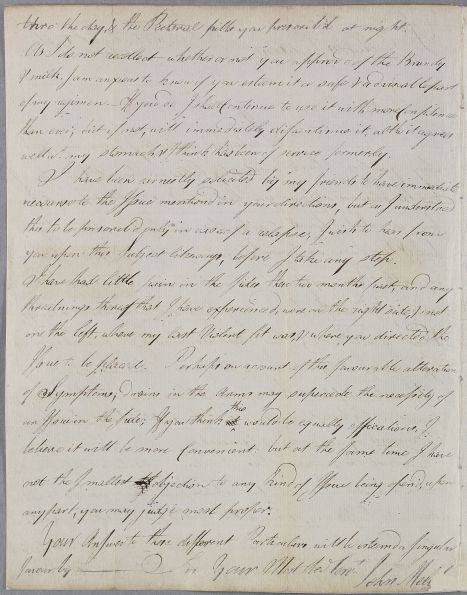 thro' the day, & the Pectoral pills you prescrib'd at night.
As I do not recollect whether or not you approve of the Brandy
& milk, I am anxious to know if you esteem it a safe & advisable part
of my regimen. If you do I shall continue to use it with more Confidence
than ever; but if not, will immediately discontinue it, altho' it agrees
well wt. my stomach, & I think has been of service formerly.
I have been earnestly solicited by my friends to have immediate
recourse to the Issue mentioned in your directions, but as I understood
this to be prescrib'd only in case of a relapse, I wish to hear from
you upon this Subject likeways, before I take any step.
I have had little pain in the sides these two months past, and any
threatnings thereof that I have experienced, were on the right side, & not
on the left, where my last Violent fit was, & where you directed the
Issue to be placed. Perhaps on account of this favourable alteration
of Symptoms, drains in the Arms may supercede the necessity of
an Issue in the side; If you think this would be equally efficacious, I
believe it will be more Convenient: but at the same time I have
not the smallest objection to any kind of Issue being open'd, upon
any part, you may judge most proper.
Your Answer to these different Particulars will be esteem'd a singular
favour by Sir Your Most Obedt. Servt.
John